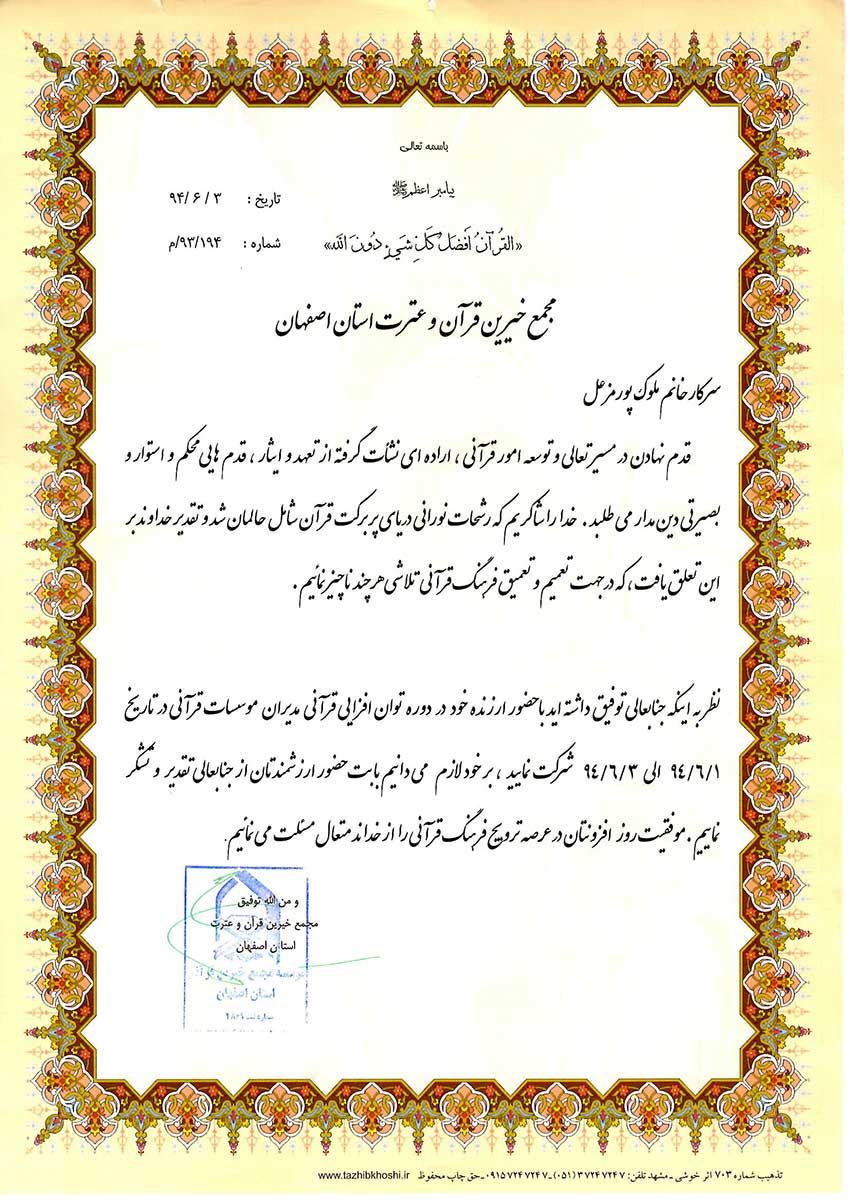 باسمه تعالی
پیامبر اعظم ﷺ
تاریخ : ۹۴/۶/۳
«القُرآنُ اَفضَلُ کُلِّ شَیءٍ دُونَ الله»
شماره : ۹۳/۱۹۴/م
مجمع خیرین قرآن و عترت استان اصفهان
سرکار خانم ملوک پور مزعل
قدم نهادن در مسیر تعالی و توسعه امور قرآنی ، اراده ای نشات گرفته از تعهد و ایثار ، قدم هایی محکم و استوار و
بصیرتی دین مدار می طلبد . خدا را شاکریم که رشحات نورانی دریای پر برکت قرآن شامل حالمان شد و تقدیر خداوند بر
این تعلق یافت ، که در جهت تعمیم و تعمیق فرهنگ قرآنی تلاشی هر چند ناچیز نمائیم .
نظر به اینکه جنابعالی توفیق داشته اید با حضور ارزنده خود در دوره توان افزایی قرآنی مدیران موسسات قرآنی در تاریخ
۹۴/۶/۱ الی ۹۴/۶/۳ شرکت نمایید ، بر خود لازم می دانیم بابت حضور ارزشمندتان از جنابعالی تقدیر و تشکر
نماییم . موفقیت روز افزونتان در عرصه ترویج فرهنگ قرآنی را از خداند متعال مسئلت می نمائیم .
و من الله توفیق
مجمع خیرین قرآن و عترت
استان اصفهان
موسسه مجمع خیرین قرآن
استان اصفهان
تذهیب شماره ۷۰۳ اثر خوشی - مشهد تلفن: ۳۷۲۴۷۲۴۷ (۰۵۱) - ۰۹۱۵۷۲۴۷۲۴۷ - حق چاپ محفوظ www.tazhibkhoshi.ir